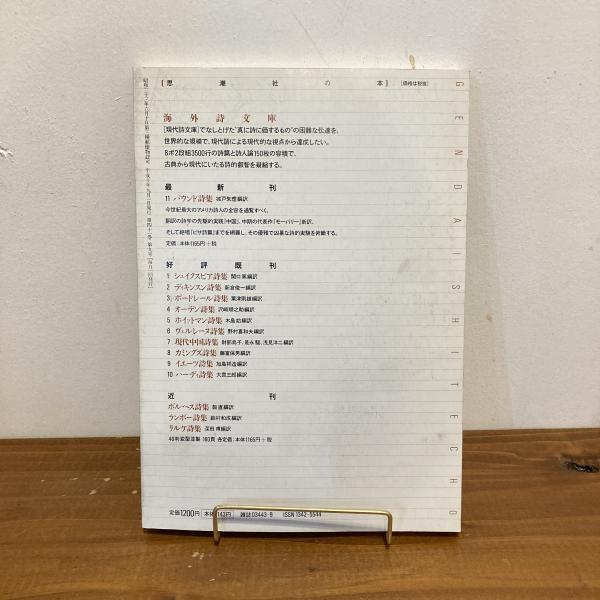 [思潮社の本] [価格は税抜]
海外詩文庫
[現代詩文庫]でなしとげた“真に詩に価するもの”の困難な伝達を、
世界的な規模で、現代語による現代的な視点から達成したい。
8ポ2段組3500行の詩篇と詩人論150枚の容積で、
古典から現代にいたる詩的叡智を凝縮する。
最新刊
11 パウンド詩集 城戸朱理編訳
今世紀最大のアメリカ詩人の全容を通覧すべく、
翻訳の詩学の先駆的実践『中国』、中期の代表作『モーバリー』新訳、
そして絶唱『ピサ詩篇』までを網羅し、その優雅で凶暴な詩的実験を俯瞰する。
定価:本体1165円+税
好評既刊
1 シェイクスピア詩集 関口篤編訳
2 ディキンスン詩集 新倉俊一編訳
3 ボードレール詩集 粟津則雄編訳
4 オーデン詩集 沢崎順之助編訳
5 ホイットマン詩集 木島始編訳
6 ヴェルレーヌ詩集 野村喜和夫編訳
7 現代中国詩集 財部鳥子、是永駿、浅見洋二編訳
8 カミングズ詩集 藤富保男編訳
9 イエーツ詩集 加島祥造編訳
10 ハーディ詩集 大貫三郎編訳
近刊
ボルヘス詩集 鼓直編訳
ランボー詩集 鈴村和成編訳
リルケ詩集 富田 編訳
46判変型並製 160頁 各定価:本体1165円+税
定価1200円 本体1143円 雑誌03443-9 ISSN 1342-5544
GENDAISHITECHO